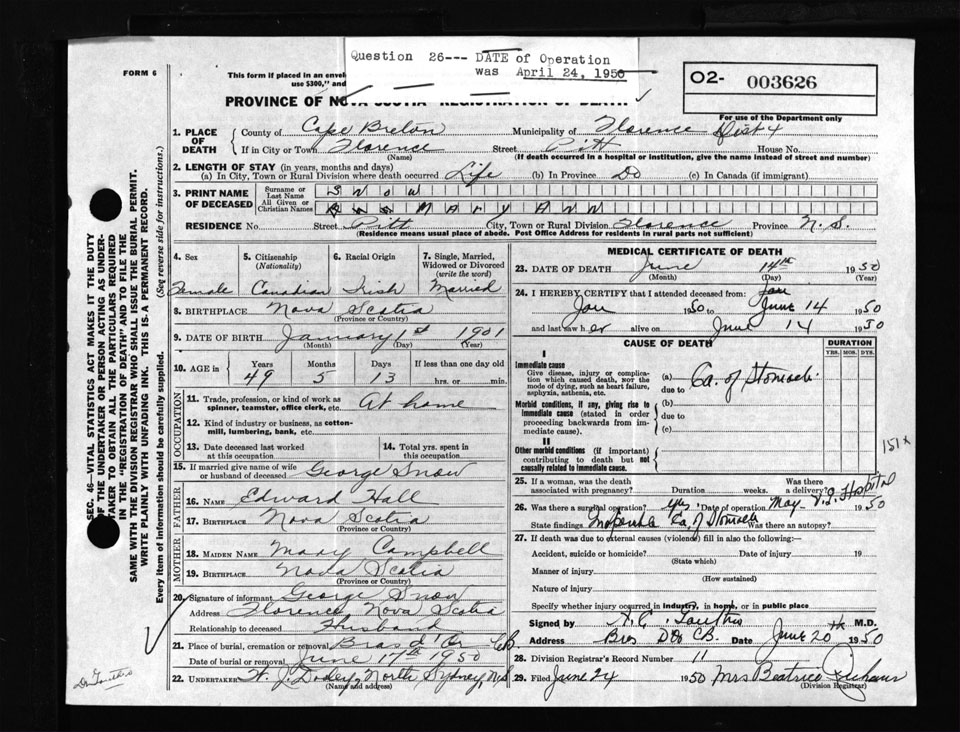 Question 26--- DATE of Operation
was April 24, 1950
O2- 003626
For use of the Department only
FORM 6
This form if placed in an envel
use $300," and
PROVINCE OF NOVA SCOTIA REGISTRATION OF DEATH
1. PLACE OF DEATH
County of Cape Breton Municipality of Florence Dist 4
If in City or Town Florence Street Pitt House No.
(Name) (If death occurred in a hospital or institution, give the name instead of street and number)
2. LENGTH OF STAY (in years, months and days)
(a) In City, Town or Rural Division where death occurred Life (b) In Province Do (c) In Canada (if immigrant)
3. PRINT NAME OF DECEASED
Surname or Last Name Snow
All Given or Christian Names Mary Ann
RESIDENCE No. Street Pitt City, Town or Rural Division Florence Province N.S.
(Residence means usual place of abode. Post Office Address for residents in rural parts not sufficient)
4. Sex 5. Citizenship (Nationality) 6. Racial Origin 7. Single, Married, Widowed or Divorced (write the word)
Female Canadian Irish Married
8. BIRTHPLACE Nova Scotia
(Province or Country)
9. DATE OF BIRTH January 1st 1901
(Month) (Day) (Year)
10. AGE in Years Months Days If less than one day old
49 5 13 hrs. or min.
OCCUPATION
11. Trade, profession, or kind of work as spinner, teamster, office clerk, etc. At home
12. Kind of industry or business, as cotton-mill, lumbering, bank, etc.
13. Date deceased last worked at this occupation
14. Total yrs. spent in this occupation
15. If married give name of wife or husband of deceased George Snow
FATHER
16. NAME Edward Hall
17. BIRTHPLACE Nova Scotia
(Province or Country)
MOTHER
18. MAIDEN NAME Mary Campbell
19. BIRTHPLACE Nova Scotia
(Province or Country)
20. Signature of informant George Snow
Address Florence, Nova Scotia
Relationship to deceased Husband
21. Place of burial, cremation or removal Bras d'Or CB
Date of burial or removal June 17th 1950
22. UNDERTAKER W. J. Dooley, North Sydney, N.S.
(Name and address)
MEDICAL CERTIFICATE OF DEATH
23. DATE OF DEATH June 14th 1950
(Month) (Day)
24. I HEREBY CERTIFY that I attended deceased from: Jan
Jan 1950 to June 14 1950
and last saw her alive on June 14 1950
CAUSE OF DEATH DURATION
YRS. MOS. DYS.
I
Immediate cause
Give disease, injury or complication which caused death, NOT the mode of dying, such as heart failure, asphyxia, asthenia, etc.
(a) Ca. of Stomach
due to
Morbid conditions, if any, giving rise to immediate cause (stated in order proceeding backwards from immediate cause).
(b)
due to
(c)
II
Other morbid conditions (if important) contributing to death but not causally related to immediate cause.
151x
25. If a woman, was the death associated with pregnancy? Duration weeks. Was there a delivery?
26. Was there a surgical operation? yes Date of operation May 1950 Hospital
State findings Inoperable Ca. of Stomach Was there an autopsy?
27. If death was due to external causes (violence) fill in also the following:—
Accident, suicide or homicide? Date of injury 19
(State which)
Manner of injury
(How sustained)
Nature of injury
Specify whether injury occurred in industry, in home, or in public place
Signed by M.D.
Address Bras D'Or CB. Date June 20th 1950
28. Division Registrar's Record Number 11
29. Filed June 24 1950 Mrs Beatrice
(Division Registrar)
SEC. 46—VITAL STATISTICS ACT MAKES IT THE DUTY
OF THE UNDERTAKER OR PERSON ACTING AS UNDER-
TAKER TO OBTAIN ALL THE PARTICULARS REQUIRED
IN THE "REGISTRATION OF DEATH" AND TO FILE THE
SAME WITH THE DIVISION REGISTRAR WHO SHALL ISSUE THE BURIAL PERMIT.
WRITE PLAINLY WITH UNFADING INK. THIS IS A PERMANENT RECORD.
Every item of information should be carefully supplied. (See reverse side for instructions.)